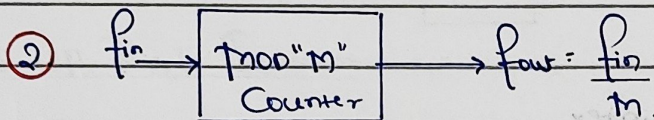 ② fin → MOD "M" Counter → fout = fin/M